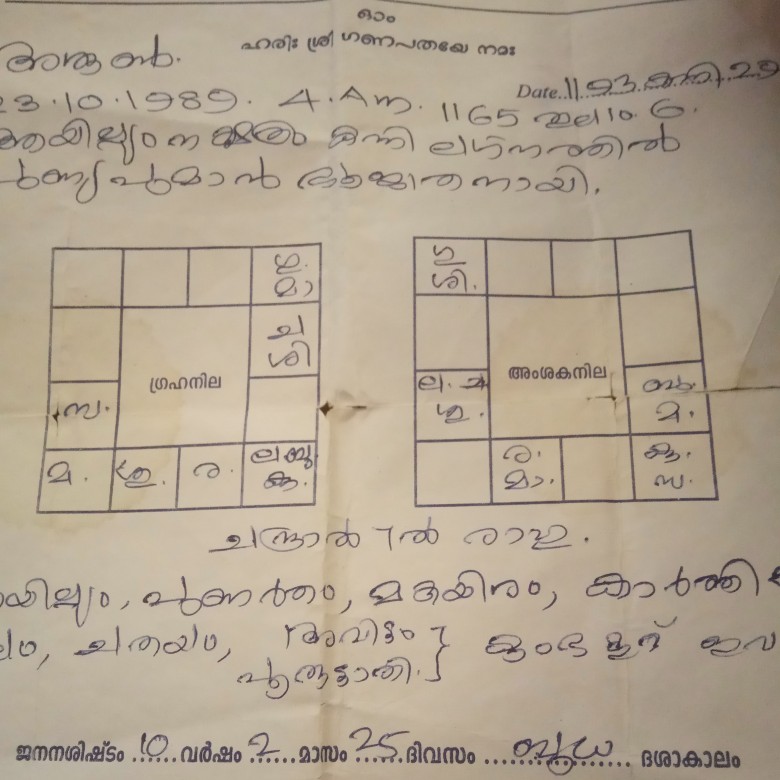 ഓം
ഹരിഃ ശ്രീ ഗണപതയേ നമഃ
അരുൺ.
Date. 1193 കന്നി 29
23.10.1989. 4.Am. 1165 തുലാം 6.
ആയില്യം നക്ഷത്രം കന്നി ലഗ്നത്തിൽ
പുണ്യപുമാൻ
ഗു.
മാ
ച
ശി
ഗ്രഹനില
സ.
മ. ശു. ര. ല ബു
കു.
ഗു
ശി.
അംശകനില
ല. ച
ശു.
ബു.
മ.
ര.
മാ.
കു.
സ.
ചന്ദ്രാൽ 7ൽ രാഹു.
യില്യം, പുണർതം, മകയിരം, കാർത്തി
ചതയം, അവിട്ടം
പൂരുട്ടാതി. } കുംഭക്കൂറ് ഇവ
ജനനശിഷ്ടം 10 വർഷം 2 മാസം 25 ദിവസം ബുധ ദശാകാലം